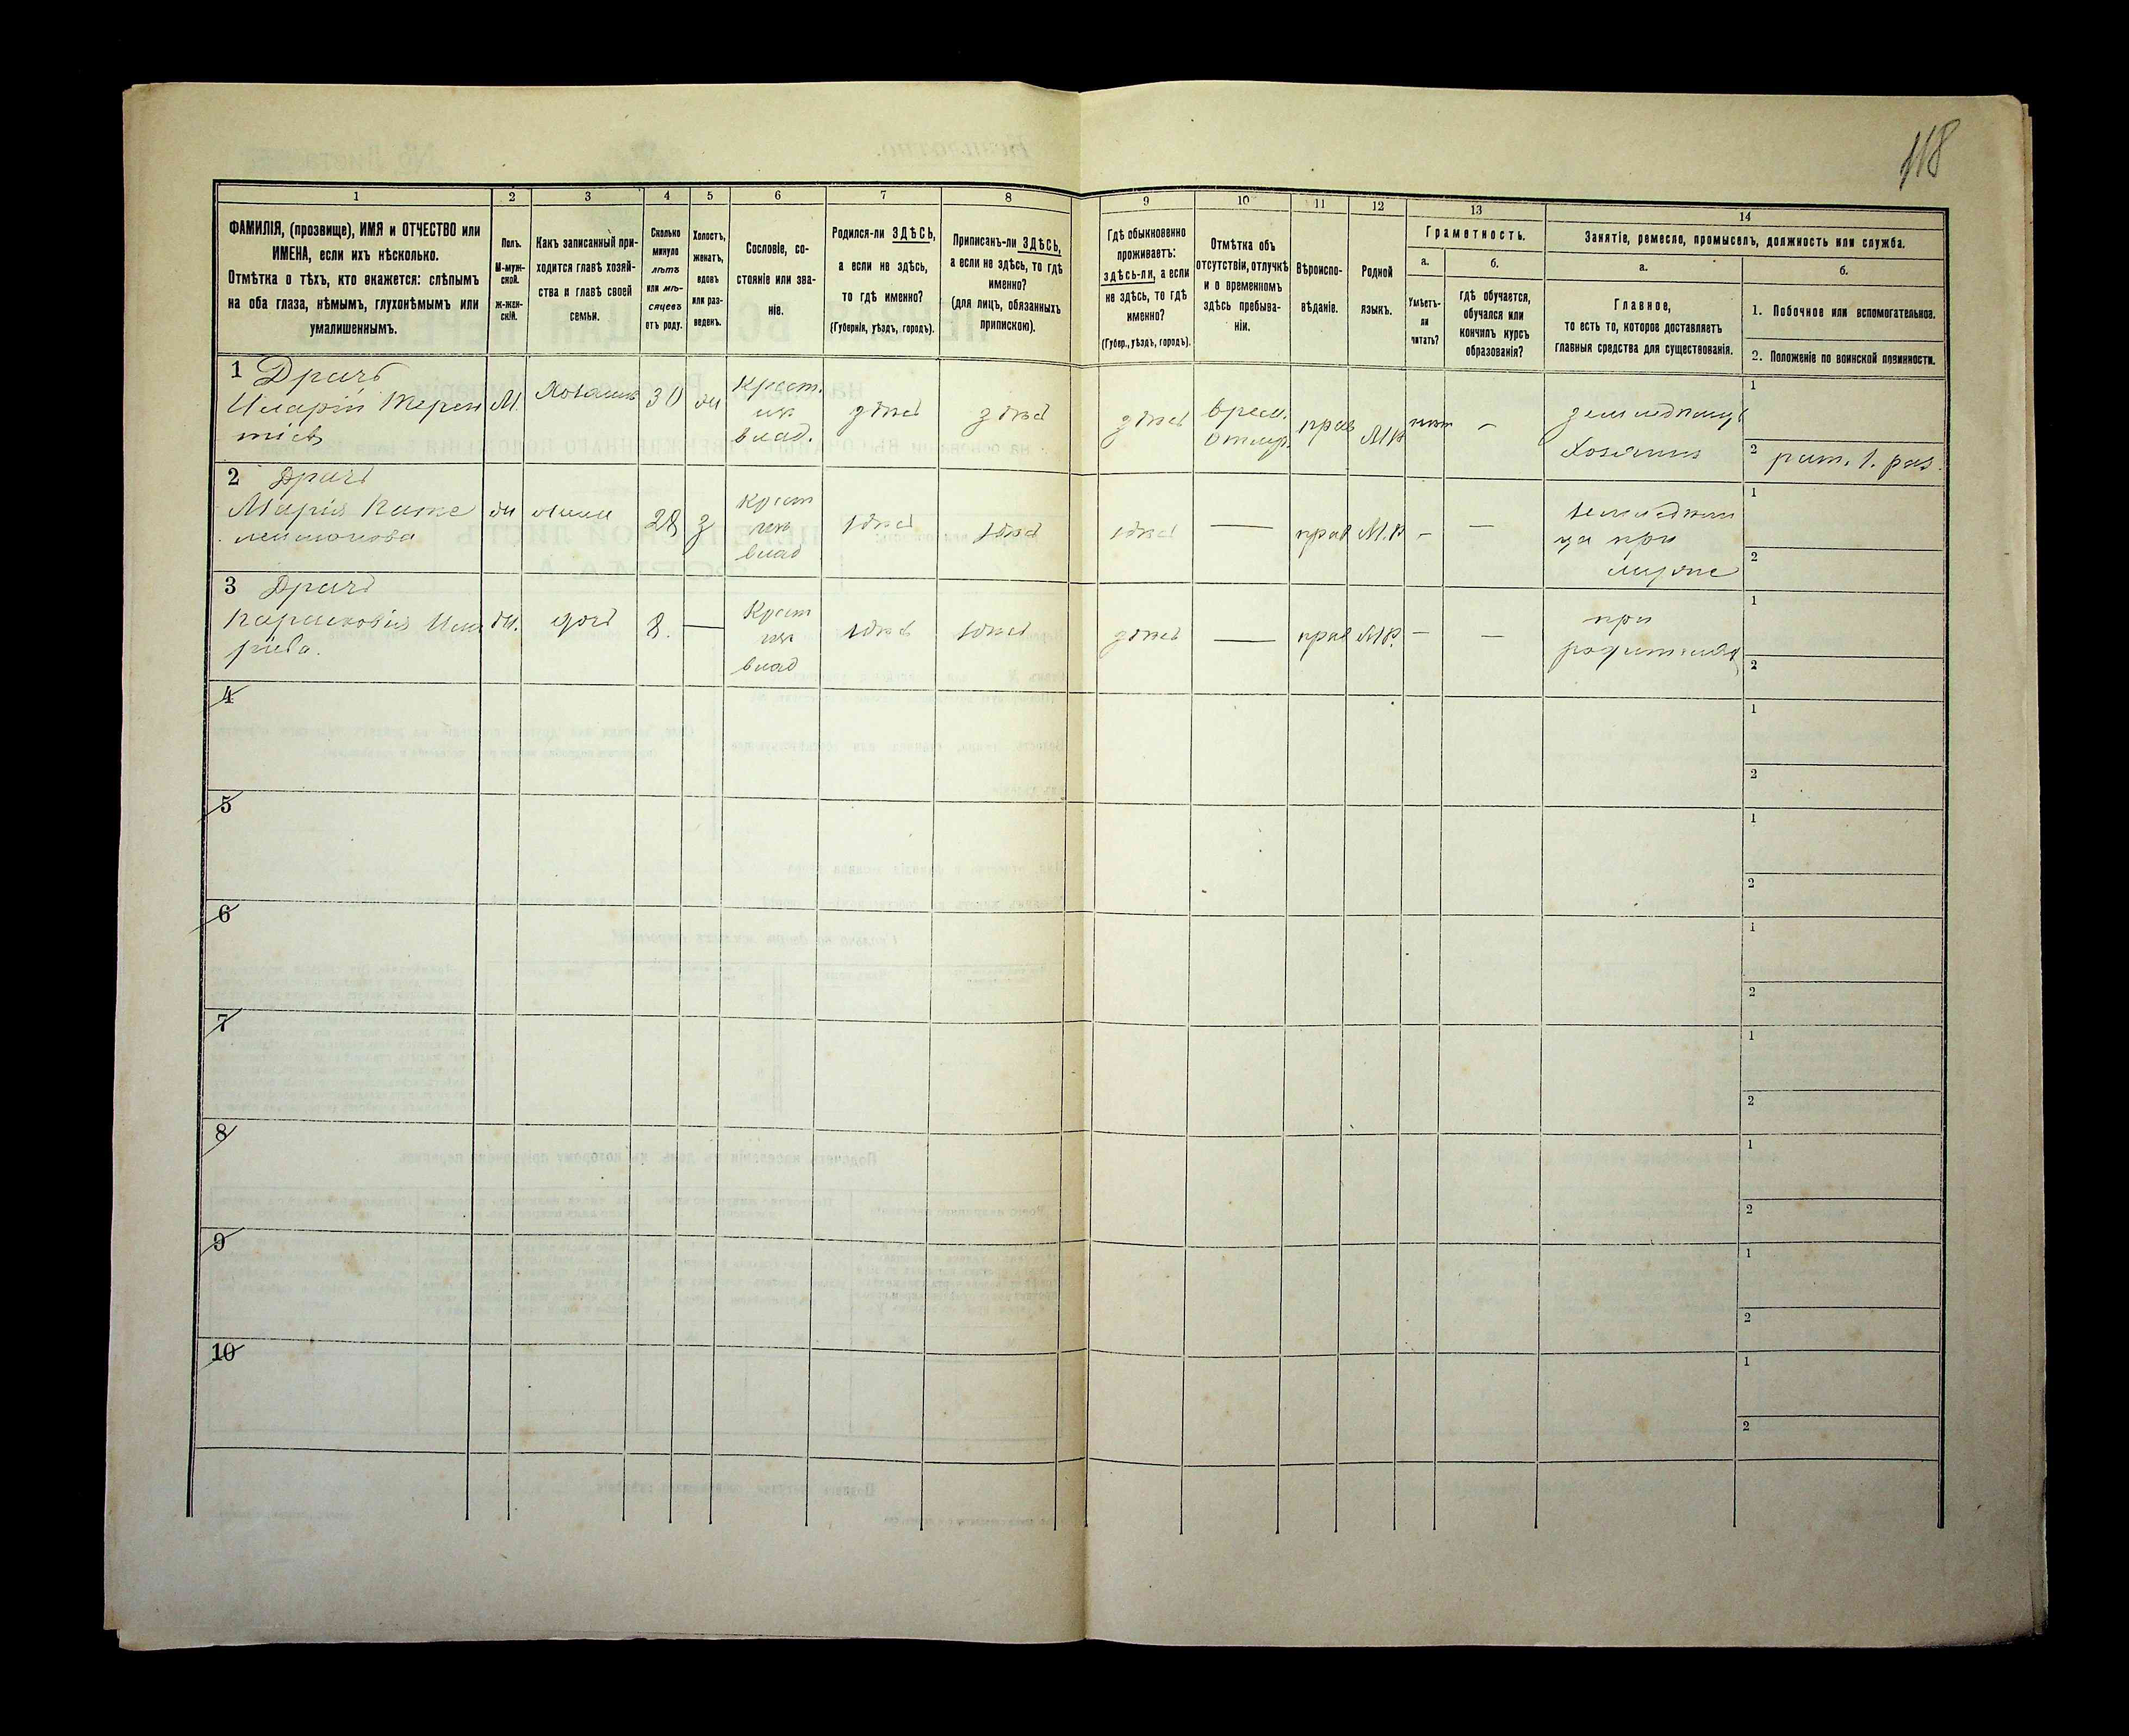 118
1
2
3
4
5
6
7
8
9
10
11
12
13
14
ФАМИЛІЯ, (прозвище), ИМЯ и ОТЧЕСТВО или
ИМЕНА, если ихъ нѣсколько.
Отмѣтка о тѣхъ, кто окажется: слѣпымъ
на оба глаза, нѣмымъ, глухонѣмымъ или
умалишеннымъ.
Полъ.
М-муж-
ской.
ж-жен-
скій.
Какъ записанный при-
ходится главѣ хозяй-
ства и главѣ своей
семьи.
Сколько
минуло
лѣтъ
или мѣ-
сяцевъ
отъ роду.
Холостъ,
женатъ,
вдовъ
или раз-
веденъ.
Сословіе, со-
стояніе или зва-
ніе.
Родился-ли ЗДѢСЬ,
а если не здѣсь,
то гдѣ именно?
(Губернія, уѣздъ, городъ).
Приписанъ-ли ЗДѢСЬ,
а если не здѣсь, то гдѣ
именно?
(для лицъ, обязанныхъ
припискою).
Гдѣ обыкновенно
проживаетъ:
здѣсь-ли, а если
не здѣсь, то гдѣ
именно?
(Губер., уѣздъ, городъ).
Отмѣтка объ
отсутствіи, отлучкѣ
и о временномъ
здѣсь пребыва-
ніи.
Вѣроиспо-
вѣданіе.
Родной
языкъ.
Грамотность.
а.
б.
Умѣетъ-
ли
читать?
гдѣ обучается,
обучался или
кончилъ курсъ
образованія?
Занятіе, ремесло, промыселъ, должность или служба.
а.
б.
Главное,
то есть то, которое доставляетъ
главныя средства для существованія.
1. Побочное или вспомогательное.
2. Положеніе по воинской повинности.
1 Драчъ
Иларій Терен
тіевъ
М.
Хозяинъ
30
ж
Крест.
изъ
влад.
здѣсь
здѣсь
здѣсь
врем.
прав
М.р
нѣтъ
—
Хозяинъ
1
2 рат. 1. раз.
2 Драчъ
Марія
ж
жена
28
з
Крест
изъ
влад
здѣсь
здѣсь
здѣсь
—
прав
М.р
—
—
ца при
мужѣ
1
2
3 Драчъ
Парасковія Ила
ріева.
ж.
дочь
8.
—
Крест
изъ
влад
здѣсь
здѣсь
здѣсь
—
прав
М.р.
—
—
при
родителяхъ
1
2
4
1
2
5
1
2
6
1
2
7
1
2
8
1
2
9
1
2
10
1
2